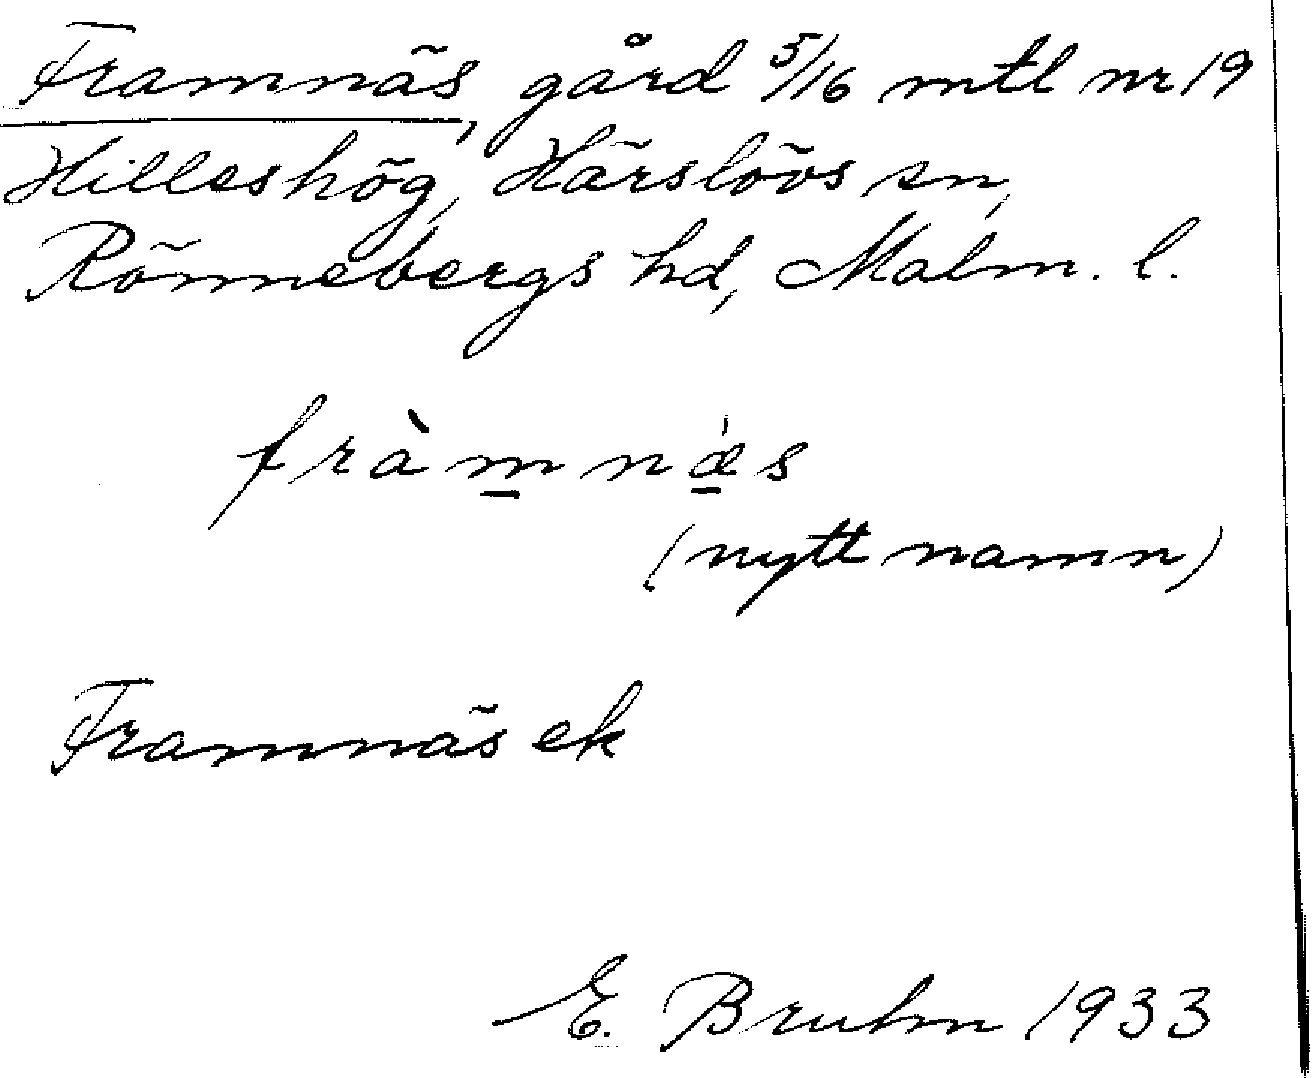 Framnäs, gård 5/16 mtl nr 19
Hilleshög, Härslövs sn,
Rönnebergs hd, Malm. l.
fràm̱nǽ̱s
(nytt namn)
Framnäs ek
E. Bruhn 1933